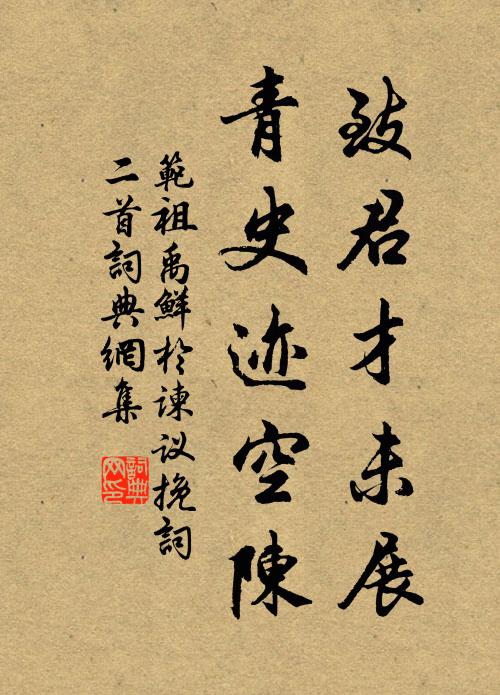 致君才未展
青史迹空陳
範祖禹鮮於諫议挽詞
二首詞典網集
詞典
网印